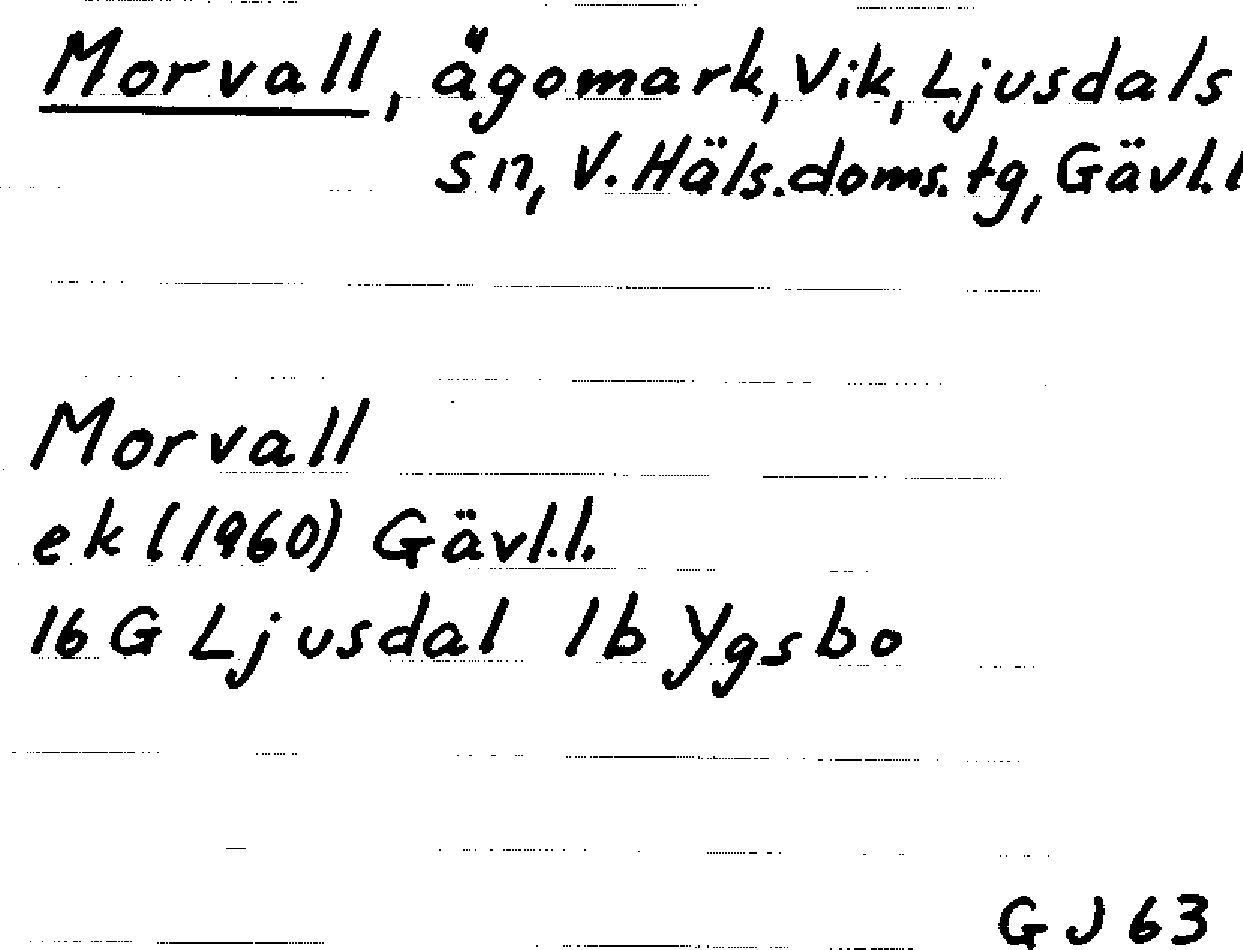 Morvall, ägomark, Vik, Ljusdals
sn, V. Häls.doms.tg, Gävl.l
Morvall
ek (1960) Gävl.l.
16 G Ljusdal 1b Ygsbo
GJ 63